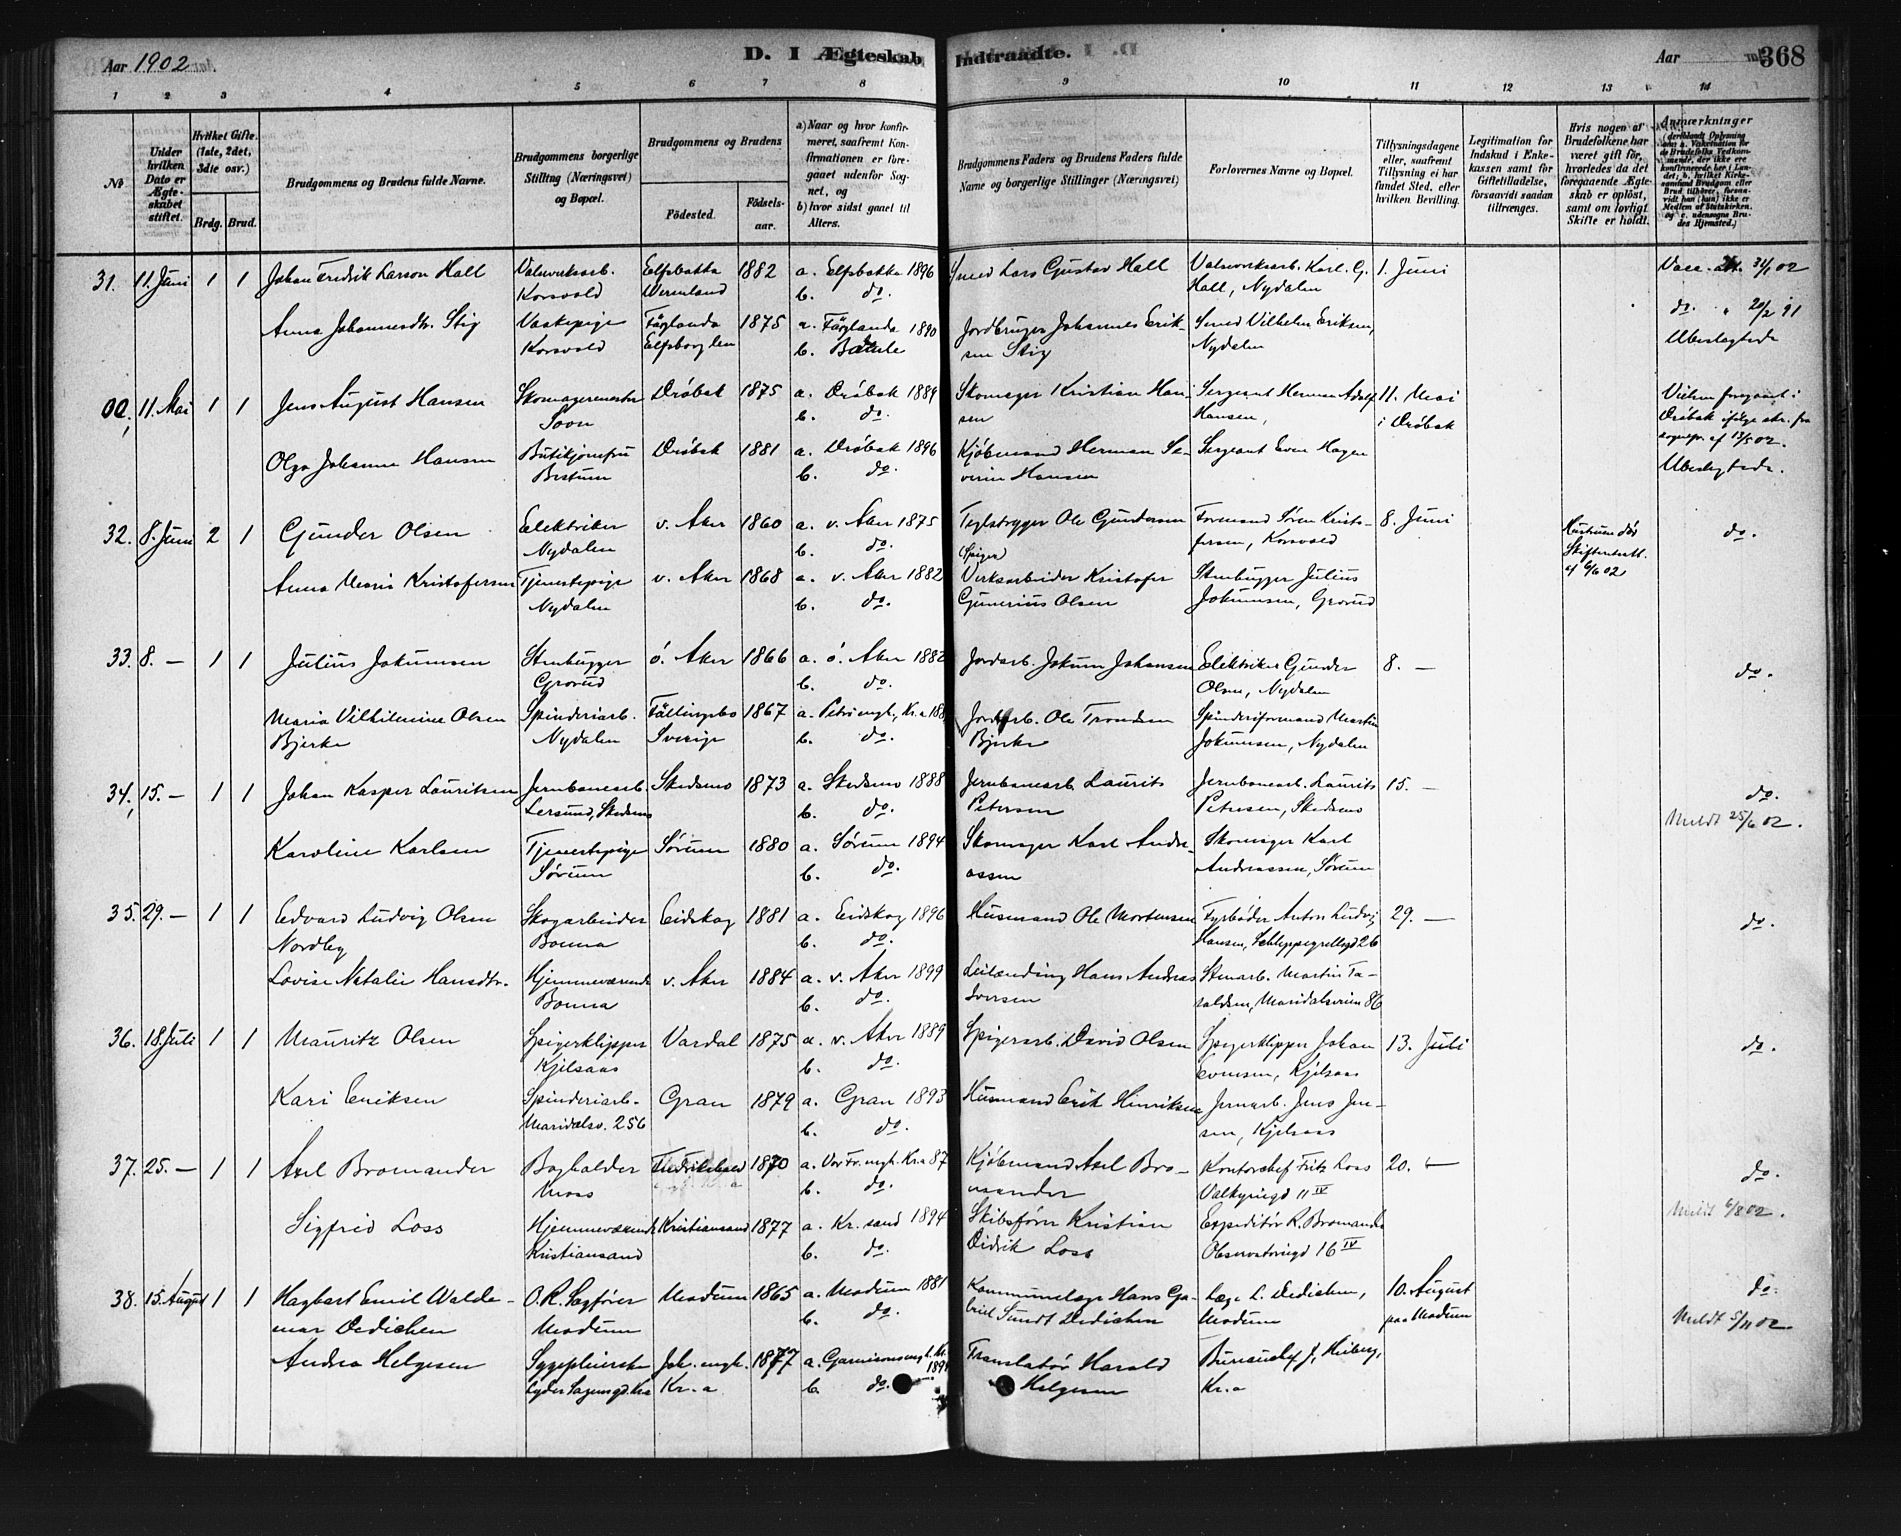 Aar 1902. D. I Ægteskab Indtraadte. Aar 368
1 2 3 4 5 6 7 8 9 10 11 12 13 14
No
Under hvilken Dato er Ægteskabet stiftet.
Hvilket Gifte. (1ste, 2det, 3die osv.)
Brdg. Brud.
Brudgommens og Brudens fulde Navne.
Brudgommens borgerlige Stilling (Næringsvei) og Bopæl.
Brudgommens og Brudens
Födested. Födselsaar.
a) Naar og hvor konfirmeret, saafremt Konfirmationen er foregaaet udenfor Sognet, og
b) hvor sidst gaaet til Alters.
Brudgommens Faders og Brudens Faders fulde Navne og borgerlige Stillinger (Næringsvei)
Forlovernes Navne og Bopæl.
Tillysningsdagene eller, saafremt Tillysning ei har fundet Sted, efter hvilken Bevilling.
Legitimation for Indskud i Enkekassen samt for Giftetilladelse, forsaavidt saadan tiltrænges.
Hvis nogen af Brudefolkene har været gift før, hvorledes da det foregaaende Ægteskab er oplöst, samt om lovligt Skifte er holdt.
Anmærkninger
31. 11 Juni 1 1 Johan Fredrik Larson Hall Valseverksarb. Korsvold 1882 a. 1896 b. do. Smed Lars Gustav Hall Valseverksarb. Karl. G. Hall, Nydalen 1. Juni Vacc. 02
Anna Johannesdtr. Stig Korsvold Färglanda Elfsborg len 1875 a. Färglanda 1890 b. Jordbruger Johannes Eriksen Stig Smed Vilhelm Eriksen, Nydalen do. 20/2 91 Ubeslægtede
00, 11. Mai 1 1 Jens August Hansen Skomagermester Soon Drøbak 1875 a. Drøbak 1889 b. do. Skomager Kristian Hansen Sergeant Herman Adolf Hansen, 11. Mai i Drøbak Vielsen foregaaet i Drøbak ifølge skr. fra sognepr. af 13/5 02.
Olga Johanne Hansen Drøbak 1881 a. Drøbak 1896 b. do. Kjøbmand Herman Severin Hansen Sergeant Even Hagen Ubeslægtede.
32. 8. Juni 2 1 Gunder Olsen Elektriker Nydalen v. Aker 1860 a. v. Aker 1875 b. do. Teglstryger Ole Gundersen Formand Søren Kristofersen, Korsvold 8. Juni Hustruen død Skifteratt. af 6/6 02 do.
Anna Maria Kristofersen Tjenestepige Nydalen v. Aker 1868 a. v. Aker 1882 b. do. Verksarbeider Kristofer Gunerius Olsen Stenhugger Julius Jokumsen, Grorud
33. 8. — 1 1 Julius Jokumsen Stenhugger Grorud ö. Aker 1866 a. ö. Aker 1882 b. do. Jordarb. Jokum Johansen Elektriker Gunder Olsen, Nydalen 8. — do.
Maria Vilhelmine Olsen Bjerke Spinderiarb. Nydalen Fellingsbo Sverige 1867 a. Petri mgh., Kr.a b. do. Jordarb. Ole Trondsen Bjerke Spinderiformand Martin Jokumsen, Nydalen
34, 15. — 1 1 Johan Kasper Lauritsen Jernbanearb. Lersund, Skedsmo Skedsmo 1873 a. Skedsmo 1888 b. do. Jernbanearb. Laurits Petersen Jernbanearb. Laurits Petersen, Skedsmo 15. — do. Meldt 25/6 02.
Karoline Karlsen Tjenestepige Sørum Sørum 1880 a. Sørum 1894 b. do. Skomager Karl Andreassen Skomager Karl Andreassen, Sørum
35. 29. — 1 1 Edvard Ludvig Olsen Nordby Skogarbeider Bonna Eidskog 1881 a. Eidskog 1896 b. do. Husmand Ole Mortensen Fyrbøder Anton Ludvig Hansen, Schleppegrellsgd 26 29. — do.
Lovise Natalie Hansdtr. Hjemmeværende Bonna v. Aker 1884 a. v. Aker 1899 b. do. Leilænding Hans Andreas Iversen Stenarb. Martin Maridalsveien 86
36. 18. Juli 1 1 Mauritz Olsen Spigerklipper Kjelsaas Vardal 1875 a. v. Aker 1889 b. do. Spigerarb. David Olsen Spigerklipper Johan Evensen, Kjelsaas 13. Juli do.
Kari Eriksen Spinderiarb. Maridalsv. 256 Gran 1879 a. Gran 1893 b. do. Husmand Erik Hinriksen Jernarb. Jens Jensen, Kjelsaas
37. 25. — 1 1 Axel Bromander Bogholder Moss Fredrikshald 1870 a. Vor Fr. mgh. Kr.a 87 b. do. Kjøbmand Axel Bromander Kontorchef Fritz Loss Valkyriegd 11 IV 20. — do. Meldt 6/8 02.
Sigfrid Loss Hjemmeværende Kristiansand Kristiansand 1877 a. Kr.sand 1894 b. do. Skibsfører Kristian Didrik Loss Expeditør R. Bromander Observatoriegd 16 IV
38. 15. August 1 1 Hagbart Emil Waldemar Dedichen O.R. Sagfører Modum Modum 1865 a. Modum 1881 b. do. Kommunelæge Hans Gabriel Sundt Dedichen Læge L. Dedichen, Modum 10. August paa Modum do. Meldt 5/11 02.
Andrea Helgesen Sygepleierske Lyder Sagensgd. Kra Joh. mgh. Kr.a 1877 a. Garnisonsmgh. Kr. b. do. Translatør Harald Helgesen Bureauchef J. Heiberg, Kr.a